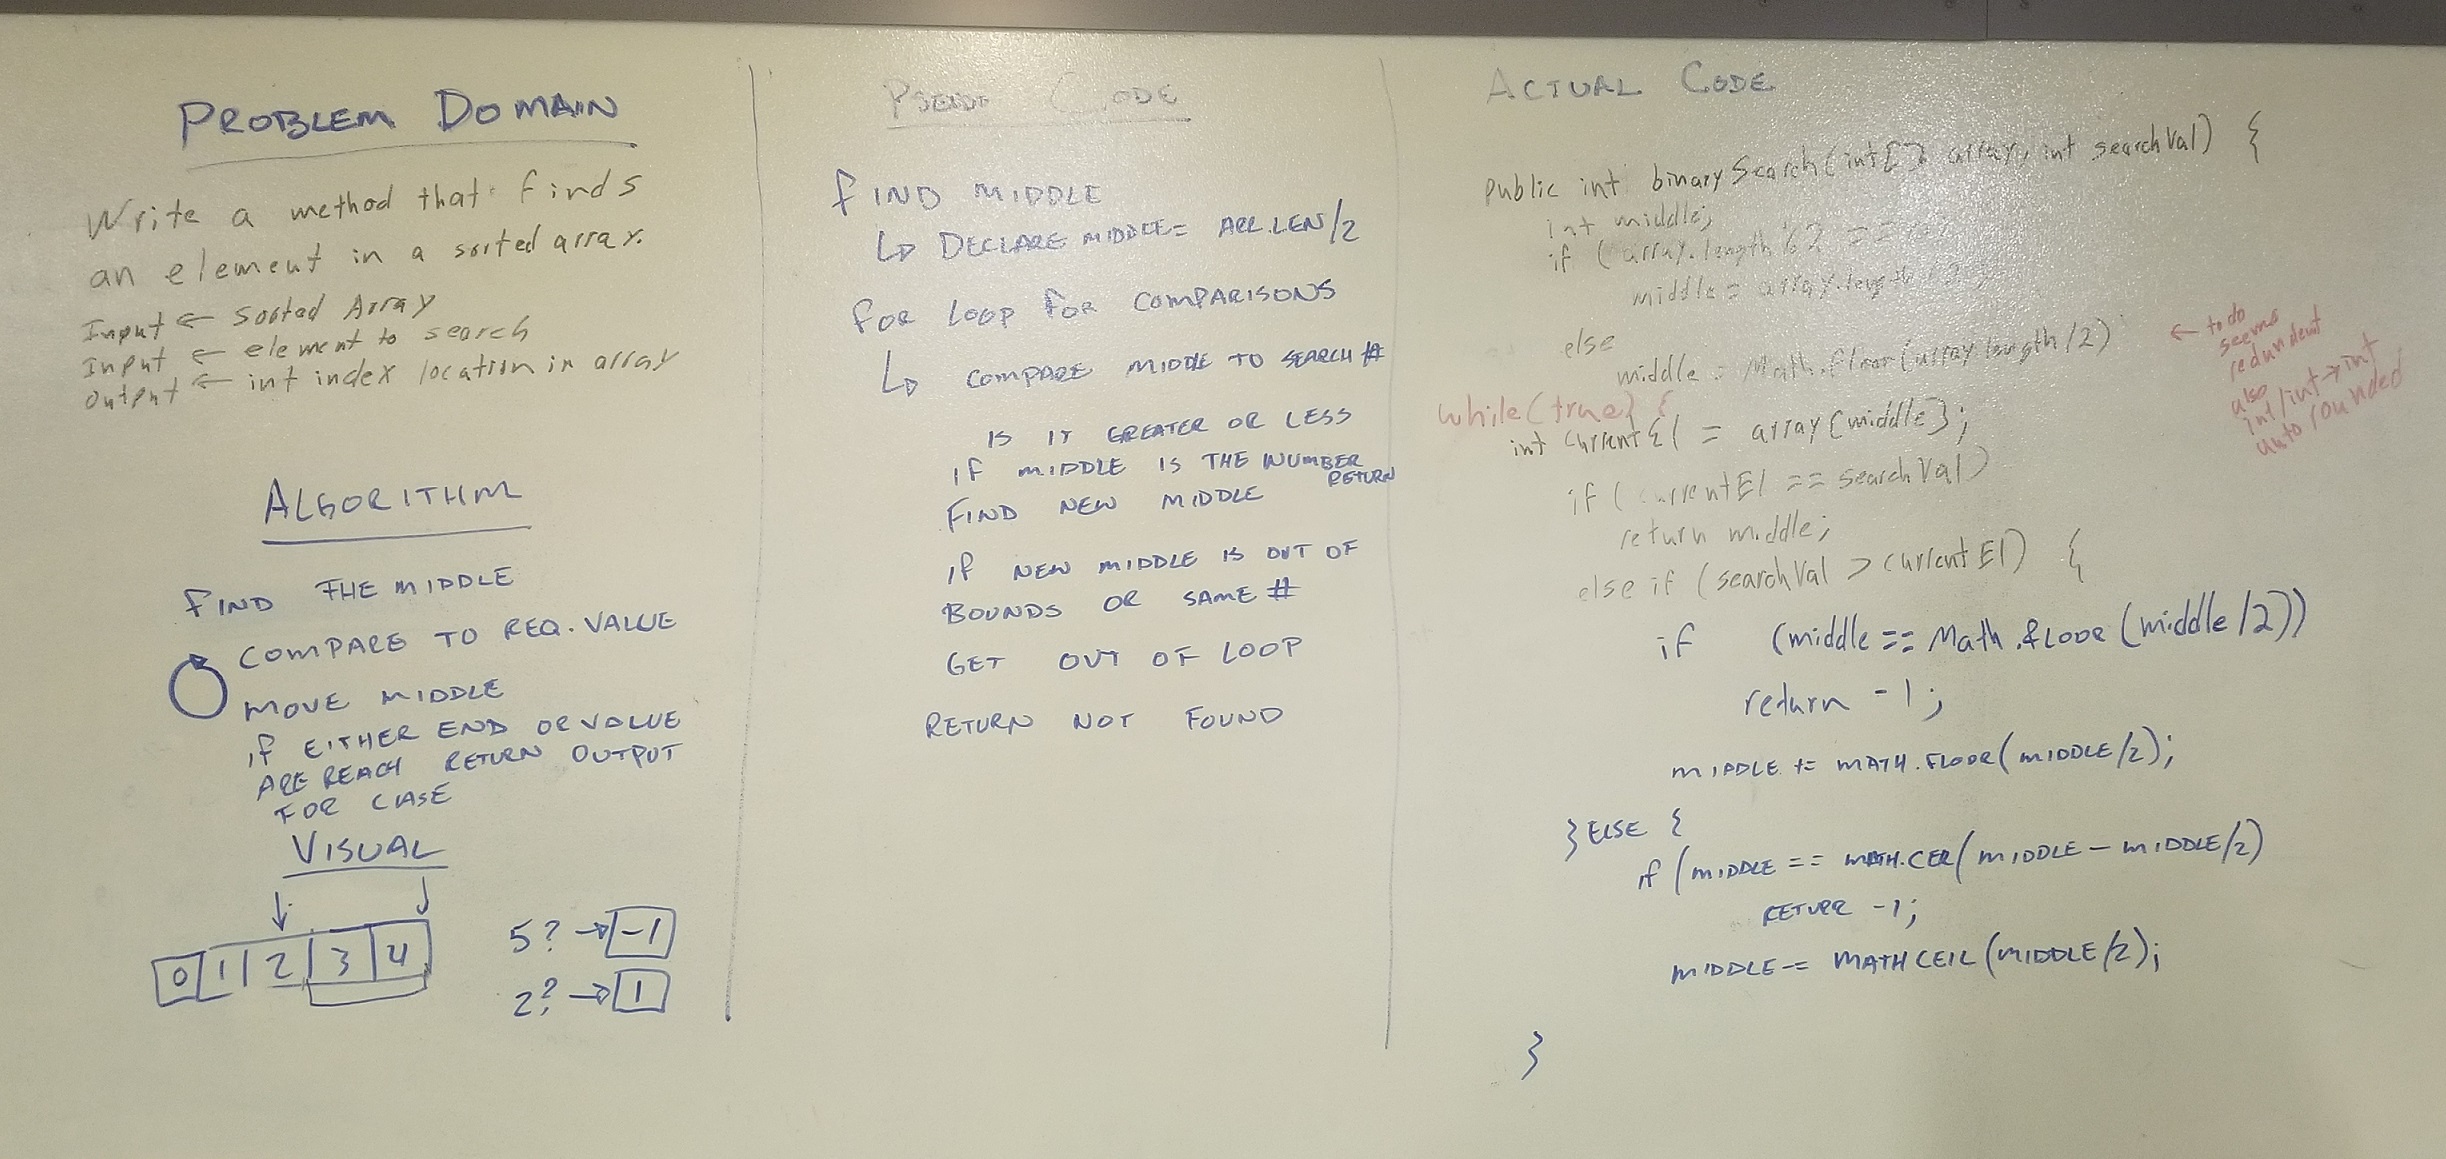 PROBLEM DOMAIN
Write a method that finds
an element in a sorted array.
Input ← Sorted Array
Input ← element to search
Output ← int index location in array
ALGORITHM
FIND THE MIDDLE
COMPARE TO REQ. VALUE
MOVE MIDDLE
if EITHER END OR VALUE
ARE REACH RETURN OUTPUT
FOR CASE
VISUAL
0 1 2 3 4
5? → -1
2? → 1
CODE
FIND MIDDLE
↳ DECLARE MIDDLE = ARR.LEN/2
FOR LOOP FOR COMPARISONS
↳ COMPARE MIDDLE TO SEARCH #
IS IT GREATER OR LESS
IF MIDDLE IS THE NUMBER
RETURN
FIND NEW MIDDLE
IF NEW MIDDLE IS OUT OF
BOUNDS OR SAME #
GET OUT OF LOOP
RETURN NOT FOUND
ACTUAL CODE
public int binarySearch(int[] array, int searchVal) {
int middle;
if (array.length % 2 ==
middle = array.length
else
middle = Math.floor(array.length/2)
← todo
seems
redundent
also
int/int→int
auto rounded
while(true) {
int currentEl = array[middle];
if (currentEl == searchVal)
return middle;
else if (searchVal > currentEl) {
if (middle == Math.floor(middle/2))
return -1;
MIDDLE += MATH.FLOOR(MIDDLE/2);
} ELSE {
if (MIDDLE == MATH.CEIL(MIDDLE - MIDDLE/2)
RETURR -1;
MIDDLE -= MATH CEIL (MIDDLE/2);
}